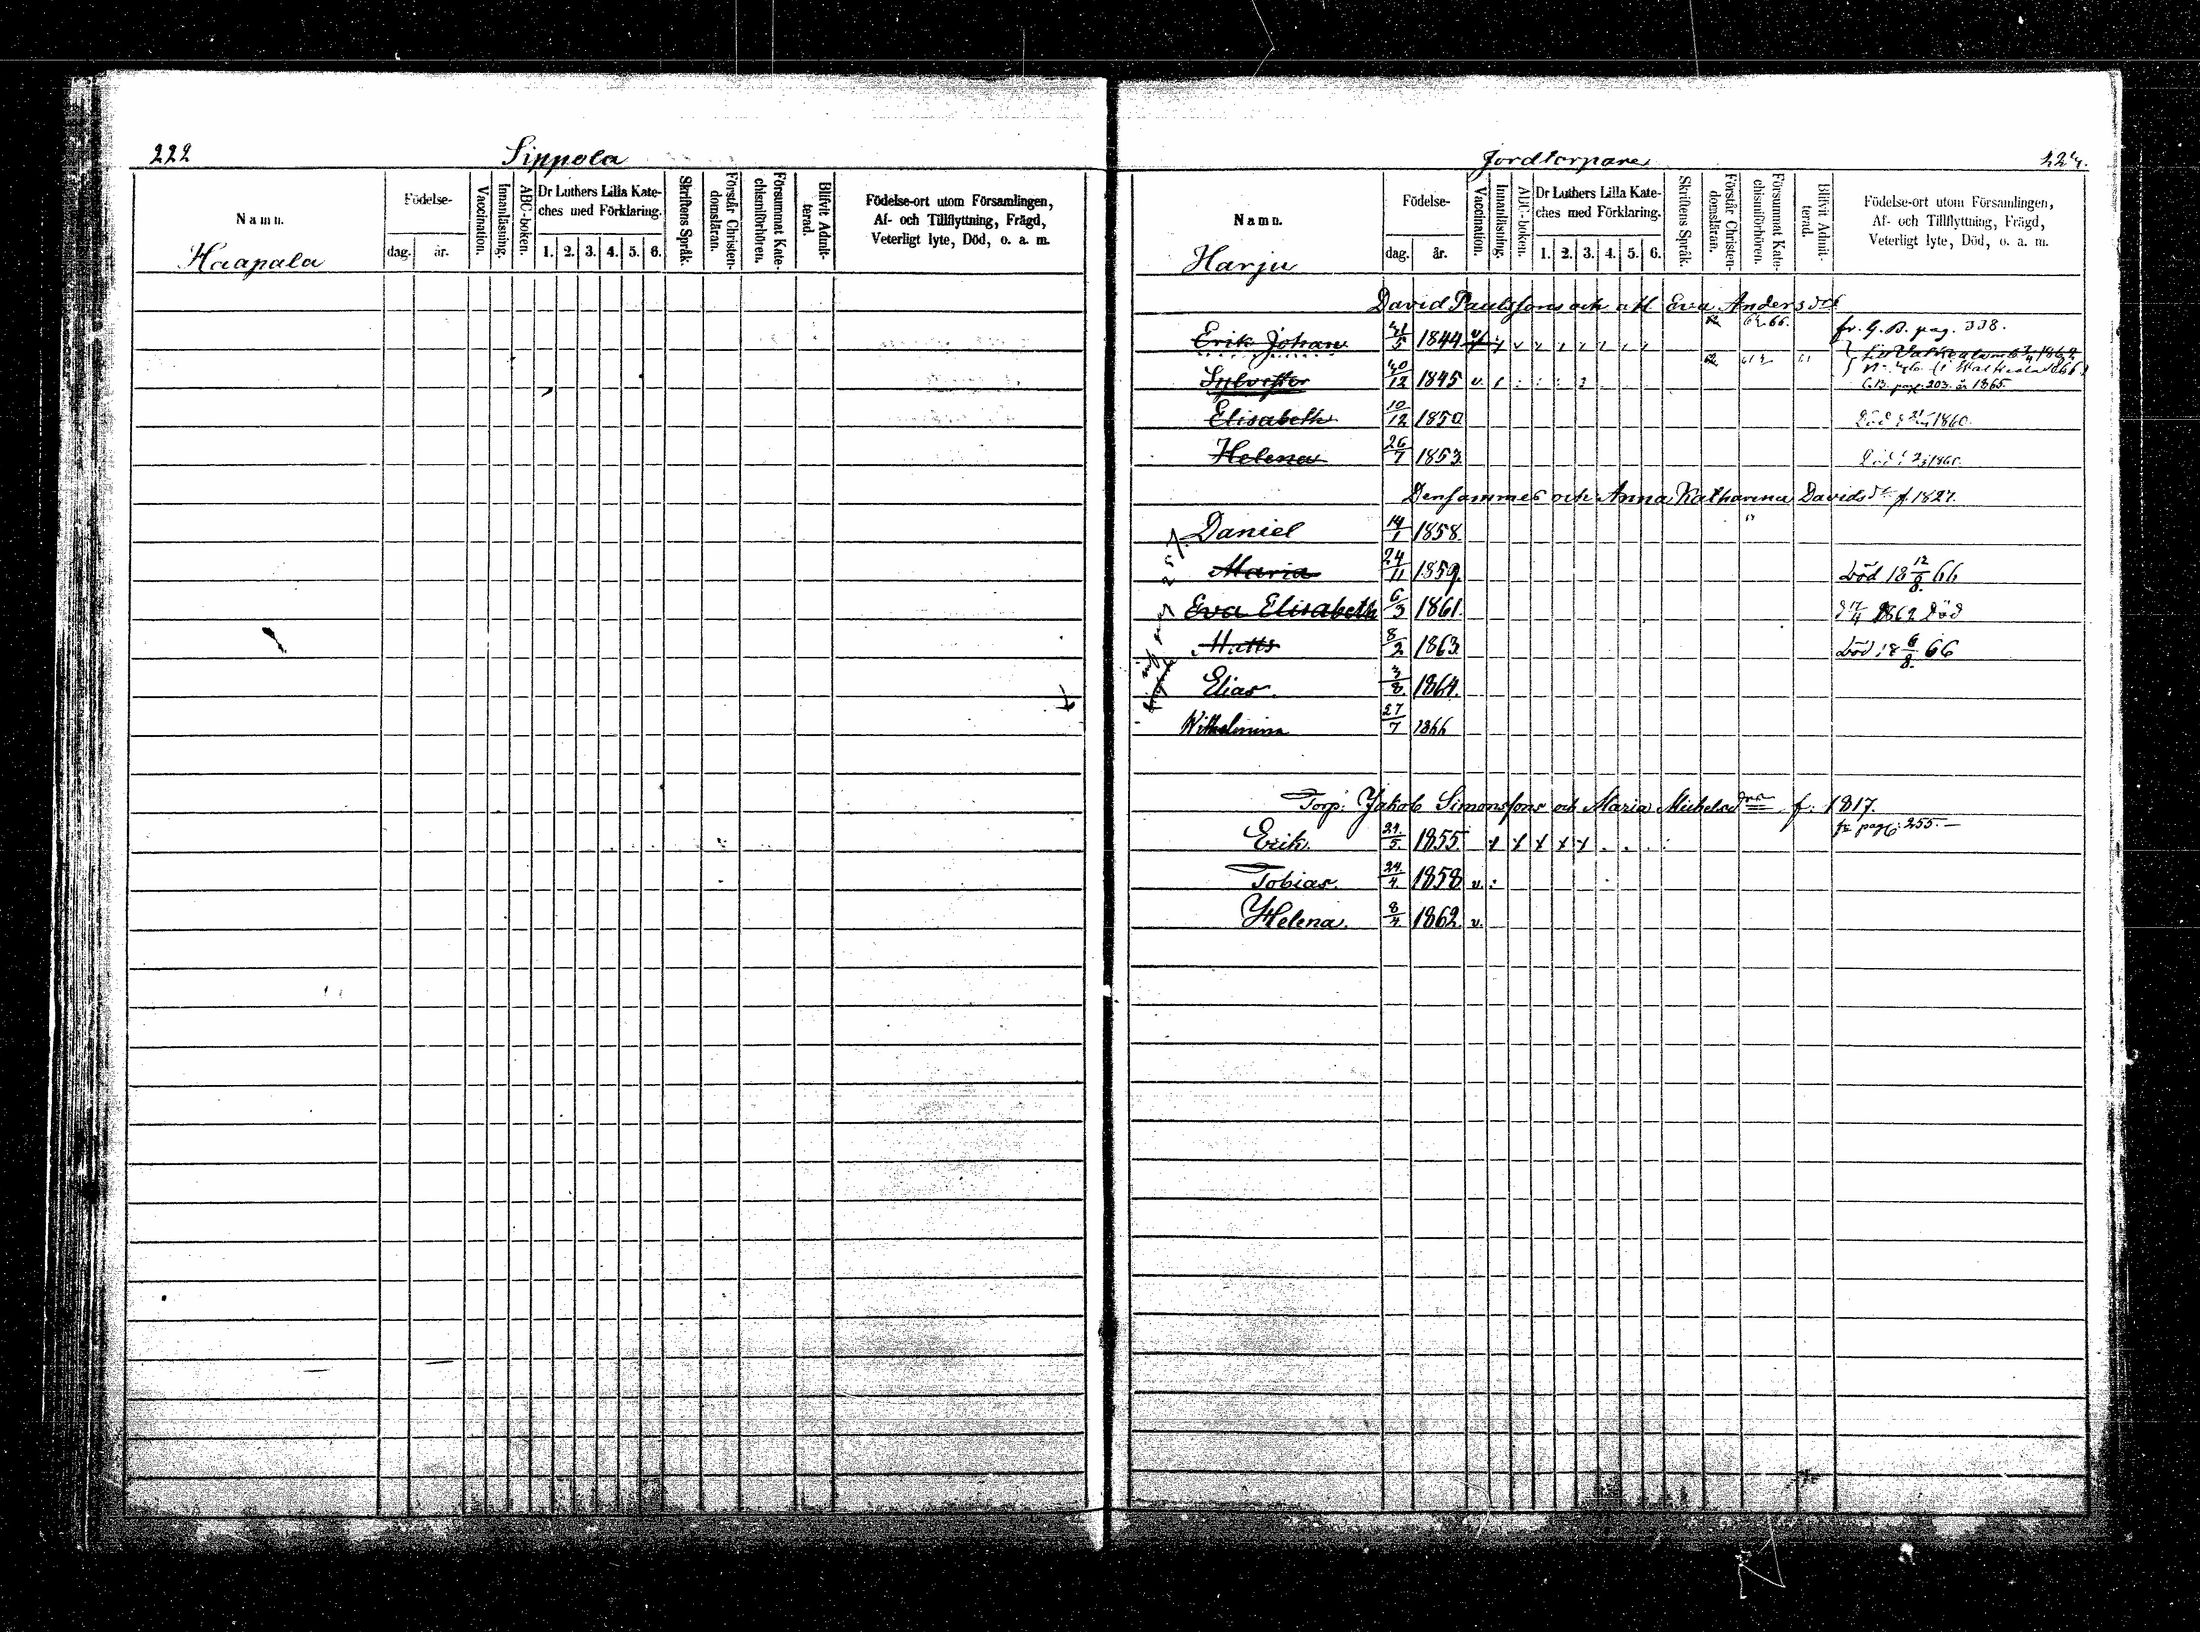 222
Sippola
Namn.
Födelse-
dag. år.
Vaccination.
Innanläsning.
ABC-boken.
Dr Luthers Lilla Kate-
ches med Förklaring.
1. 2. 3. 4. 5. 6.
Skriftens Språk.
Förstår Christen-
domsläran.
Försummat Kate-
chismiförhören.
Blifvit Admit-
terad.
Födelse-ort utom Församlingen,
Af- och Tillflyttning, Frägd,
Veterligt lyte, Död, o. a. m.
Haapala
Jordtorpare
Namn.
Födelse-
dag. år.
Vaccination.
Innanläsning.
ABC-boken.
Dr Luthers Lilla Kate-
ches med Förklaring.
1. 2. 3. 4. 5. 6.
Skriftens Språk.
Förstår Christen-
domsläran.
Försummat Kate-
chismiförhören.
Blifvit Admit-
terad.
Födelse-ort utom Församlingen,
Af- och Tillflyttning, Frägd,
Veterligt lyte, Död, o. a. m.
Harju
David Paulssons och afl Eva Andersdr
Erik Johan 1844 fr. G. B. pag. 338.
Sylvester 1845 v.
C.B. pag. 203. år 1865.
Elisabeth 10/12 1850 Död 1860.
Helena 26/7 1853.
Densammes och Anna Katharina Davidsdr f. 1827.
Daniel 14/1 1858.
Maria 24/11 1859. Död 18 12/8. 66
Eva Elisabeth 6/3 1861. 1862 död
Matts 8/2 1863. Död 18 6/8. 66
Elias. 3/8. 1864.
Wilhelmina 27/7 1866
Torp. Jakob Simonssons och Maria Michelsd f. 1817.
Erik. 1855. x x x x x fr pag. 255.
Tobias. 24/4 1858 v.
Helena. 8/4 1862. v.